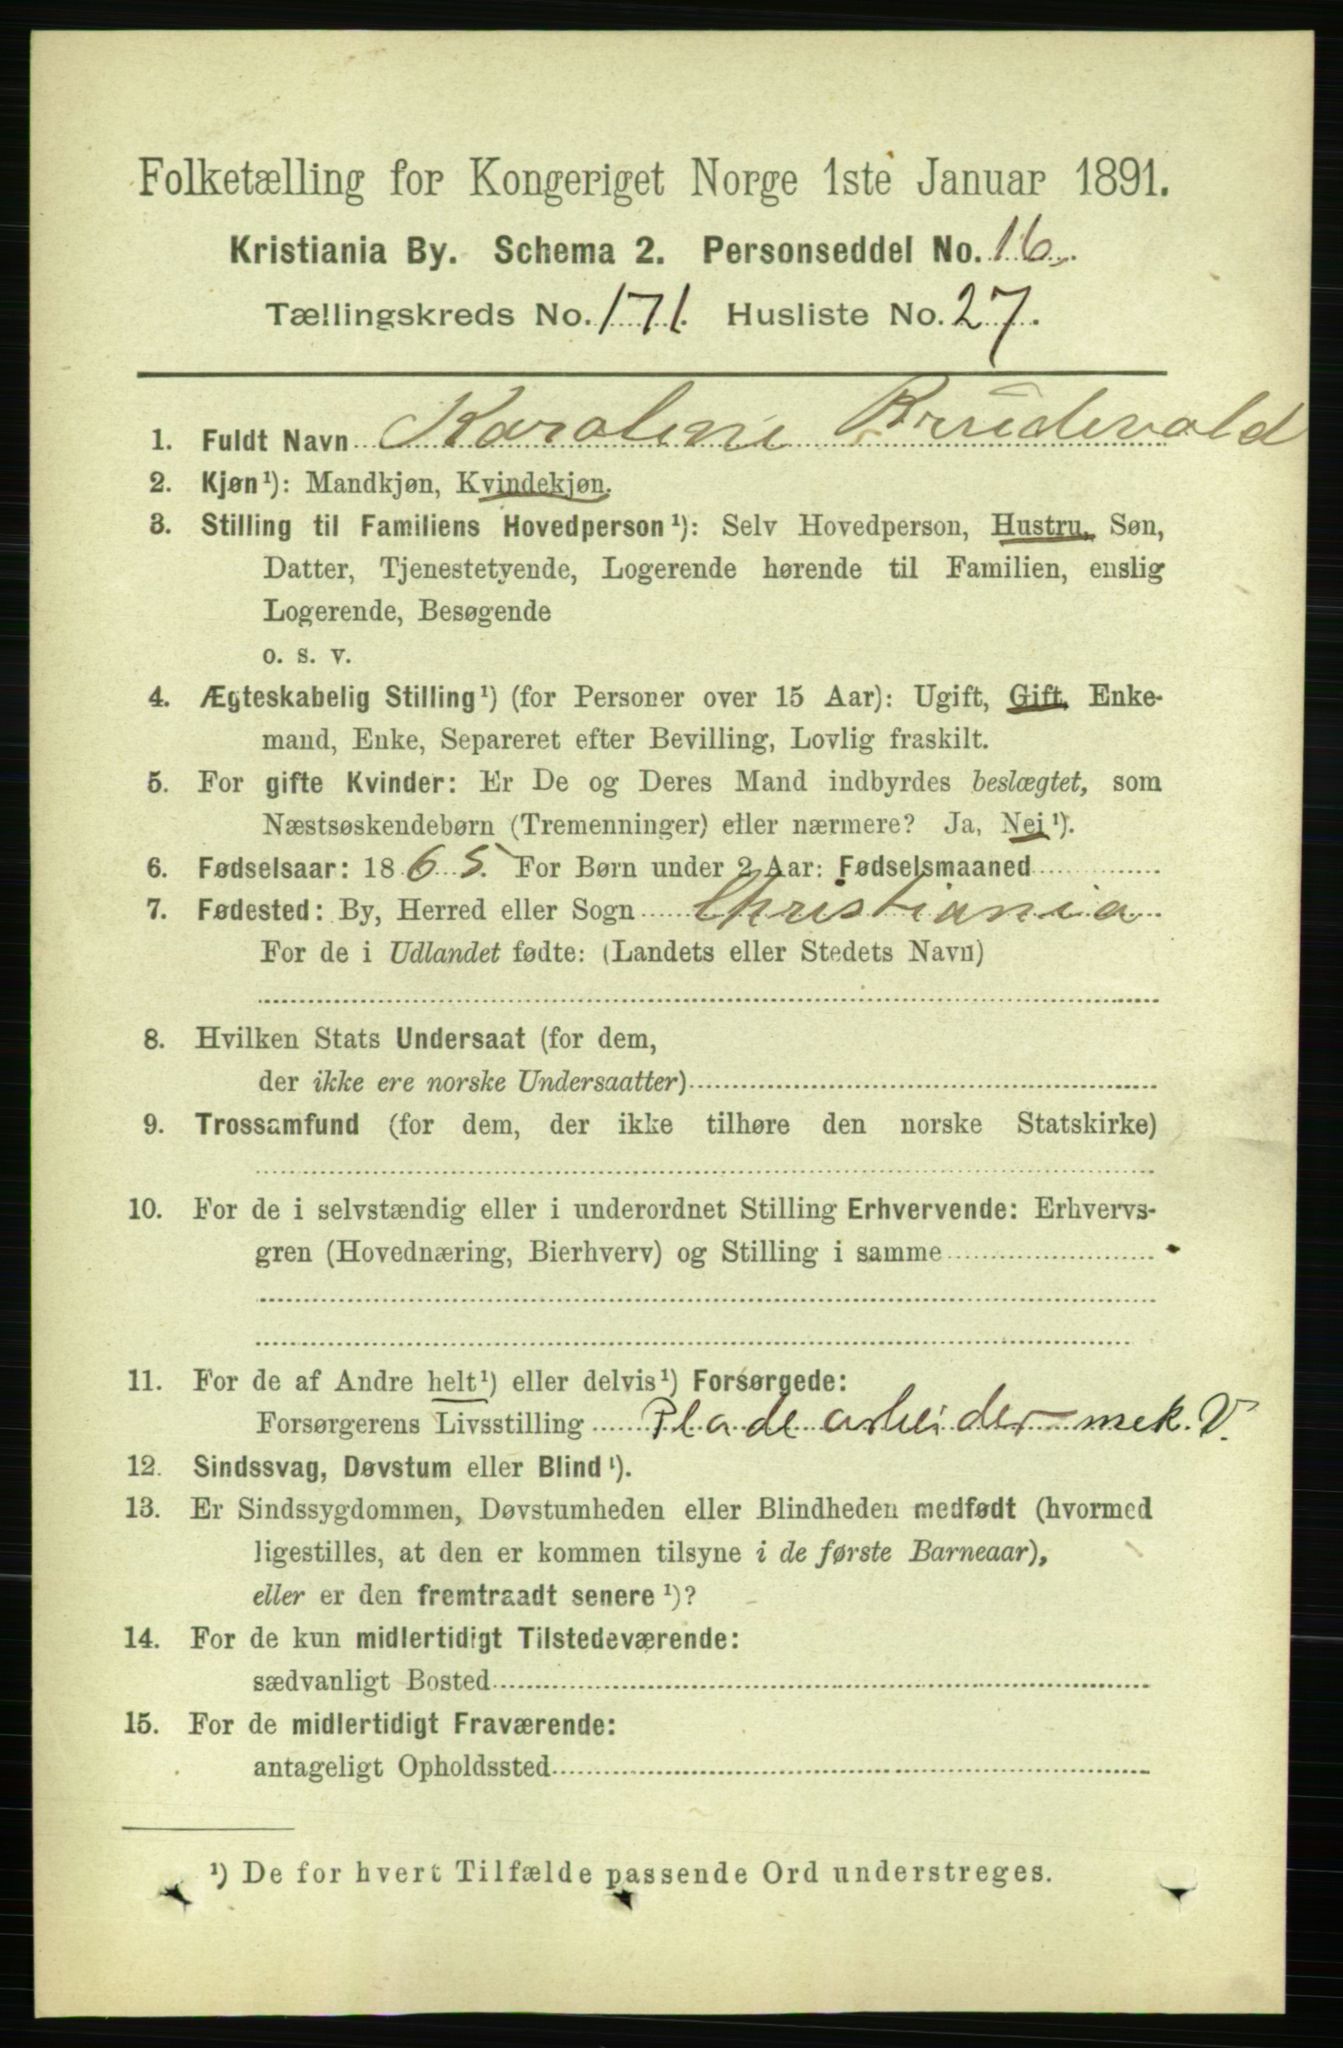 Folketælling for Kongeriget Norge 1ste Januar 1891.
Kristiania By. Schema 2. Personseddel No. 16.
Tællingskreds No. 171. Husliste No. 27.
1. Fuldt Navn Karoline Brudevold
2. Kjøn¹): Mandkjøn, Kvindekjøn.
3. Stilling til Familiens Hovedperson¹): Selv Hovedperson, Hustru, Søn,
Datter, Tjenestetyende, Logerende hørende til Familien, enslig
Logerende, Besøgende
o. s. v.
4. Ægteskabelig Stilling¹) (for Personer over 15 Aar): Ugift, Gift, Enke-
mand, Enke, Separeret efter Bevilling, Lovlig fraskilt.
5. For gifte Kvinder: Er De og Deres Mand indbyrdes beslægtet, som
Næstsøskendebørn (Tremenninger) eller nærmere? Ja, Nei¹).
6. Fødselsaar: 1865. For Børn under 2 Aar: Fødselsmaaned
7. Fødested: By, Herred eller Sogn Christiania
For de i Udlandet fødte: (Landets eller Stedets Navn)
8. Hvilken Stats Undersaat (for dem,
der ikke ere norske Undersaatter)
9. Trossamfund (for dem, der ikke tilhøre den norske Statskirke)
10. For de i selvstændig eller i underordnet Stilling Erhvervende: Erhvervs-
gren (Hovednæring, Bierhverv) og Stilling i samme
11. For de af Andre helt¹) eller delvis¹) Forsørgede:
Forsørgerens Livsstilling Pladearbeider mek. V.
12. Sindssvag, Døvstum eller Blind¹).
13. Er Sindssygdommen, Døvstumheden eller Blindheden medfødt (hvormed
ligestilles, at den er kommen tilsyne i de første Barneaar),
eller er den fremtraadt senere¹)?
14. For de kun midlertidigt Tilstedeværende:
sædvanligt Bosted
15. For de midlertidigt Fraværende:
antageligt Opholdssted
¹) De for hvert Tilfælde passende Ord understreges.